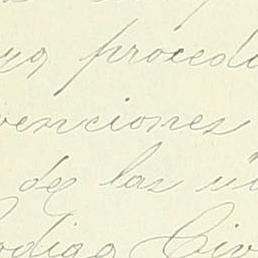 yo procedi
venciones
de las in
Codigo Civ